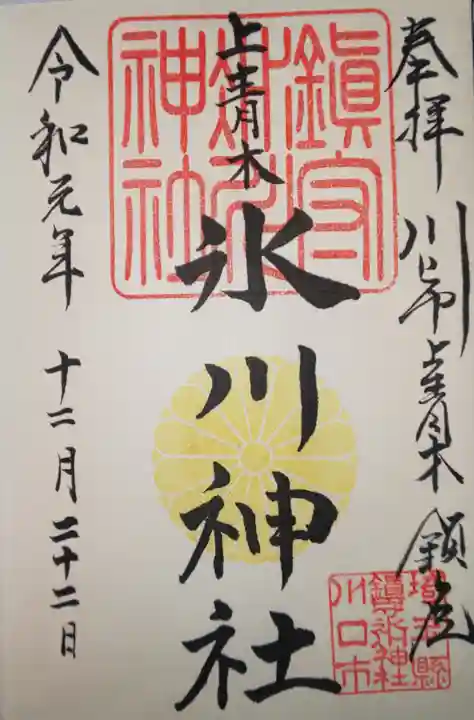 奉拝 川口市上青木 鎮座
上青木
氷川神社
令和元年 十二月二十二日
鎮守
氷川
神社
埼玉縣
鎮守氷川神社
川口市